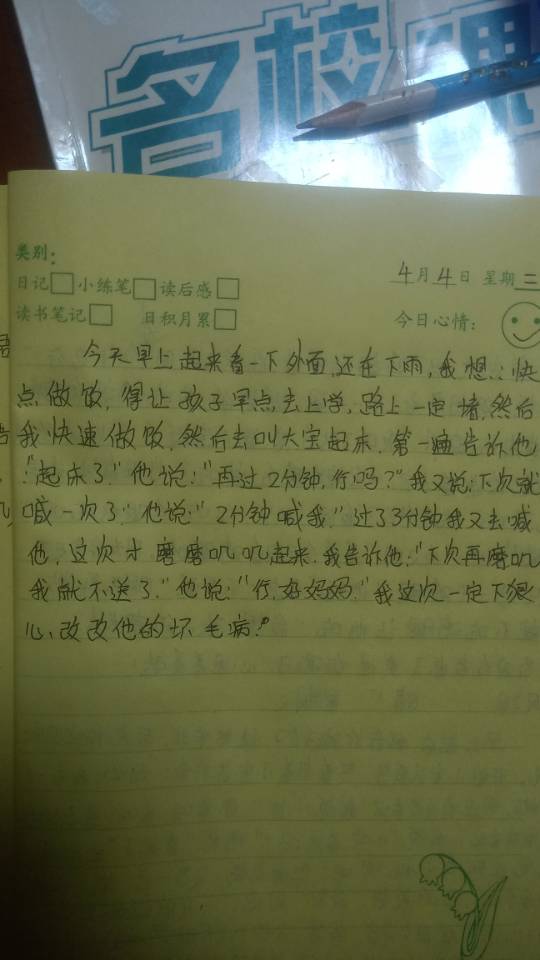 名校课
类别:
日记 小练笔 读后感
4月4日 星期三
读书笔记 日积月累
今日心情:
今天早上起来看一下外面,还在下雨,我想:快
点做饭,得让孩子早点去上学,路上一定堵,然后
我快速做饭,然后去叫大宝起床.第一遍告诉他
:"起床了."他说:"再过2分钟,行吗?"我又说:下次就
喊一次了."他说:"2分钟喊我."过了3分钟我又去喊
他,这次才磨磨叽叽起来.我告诉他:"下次再磨叽
我就不送了."他说:"行,好妈妈."我这次一定下狠
心、改改他的坏毛病!